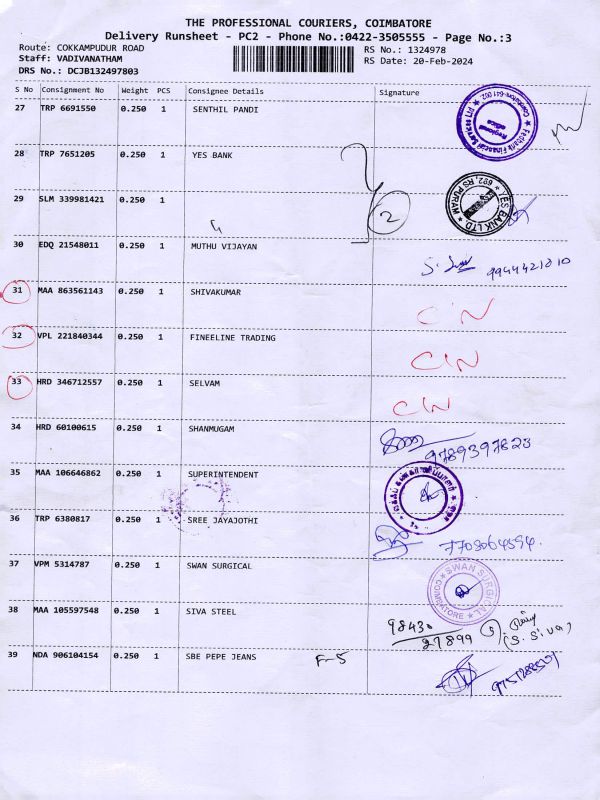 THE PROFESSIONAL COURIERS, COIMBATORE
Delivery Runsheet - PC2 - Phone No.:0422-3505555 - Page No.:3
Route: COKKAMPUDUR ROAD
RS No.: 1324978
Staff: VADIVANATHAM
RS Date: 20-Feb-2024
DRS No.: DCJB132497803
S No Consignment No Weight PCS Consignee Details Signature
27 TRP 6691550 0.250 1 SENTHIL PANDI
28 TRP 7651205 0.250 1 YES BANK
29 SLM 339981421 0.250 1
2
YES BANK LTD * 692, RS PURAM *
30 EDQ 21548011 0.250 1 MUTHU VIJAYAN
9944421010
31 MAA 863561143 0.250 1 SHIVAKUMAR C/N
32 VPL 221840344 0.250 1 FINEELINE TRADING C/N
33 HRD 346712557 0.250 1 SELVAM C/N
34 HRD 60100615 0.250 1 SHANMUGAM
9789397823
35 MAA 106646862 0.250 1 SUPERINTENDENT
36 TRP 6380817 0.250 1 SREE JAYAJOTHI
7708064594.
37 VPM 5314787 0.250 1 SWAN SURGICAL
SWAN SURGICAL * COIMBATORE *
38 MAA 105597548 0.250 1 SIVA STEEL
98430
27899
(S. Siva)
39 NDA 906104154 0.250 1 SBE PEPE JEANS F-5